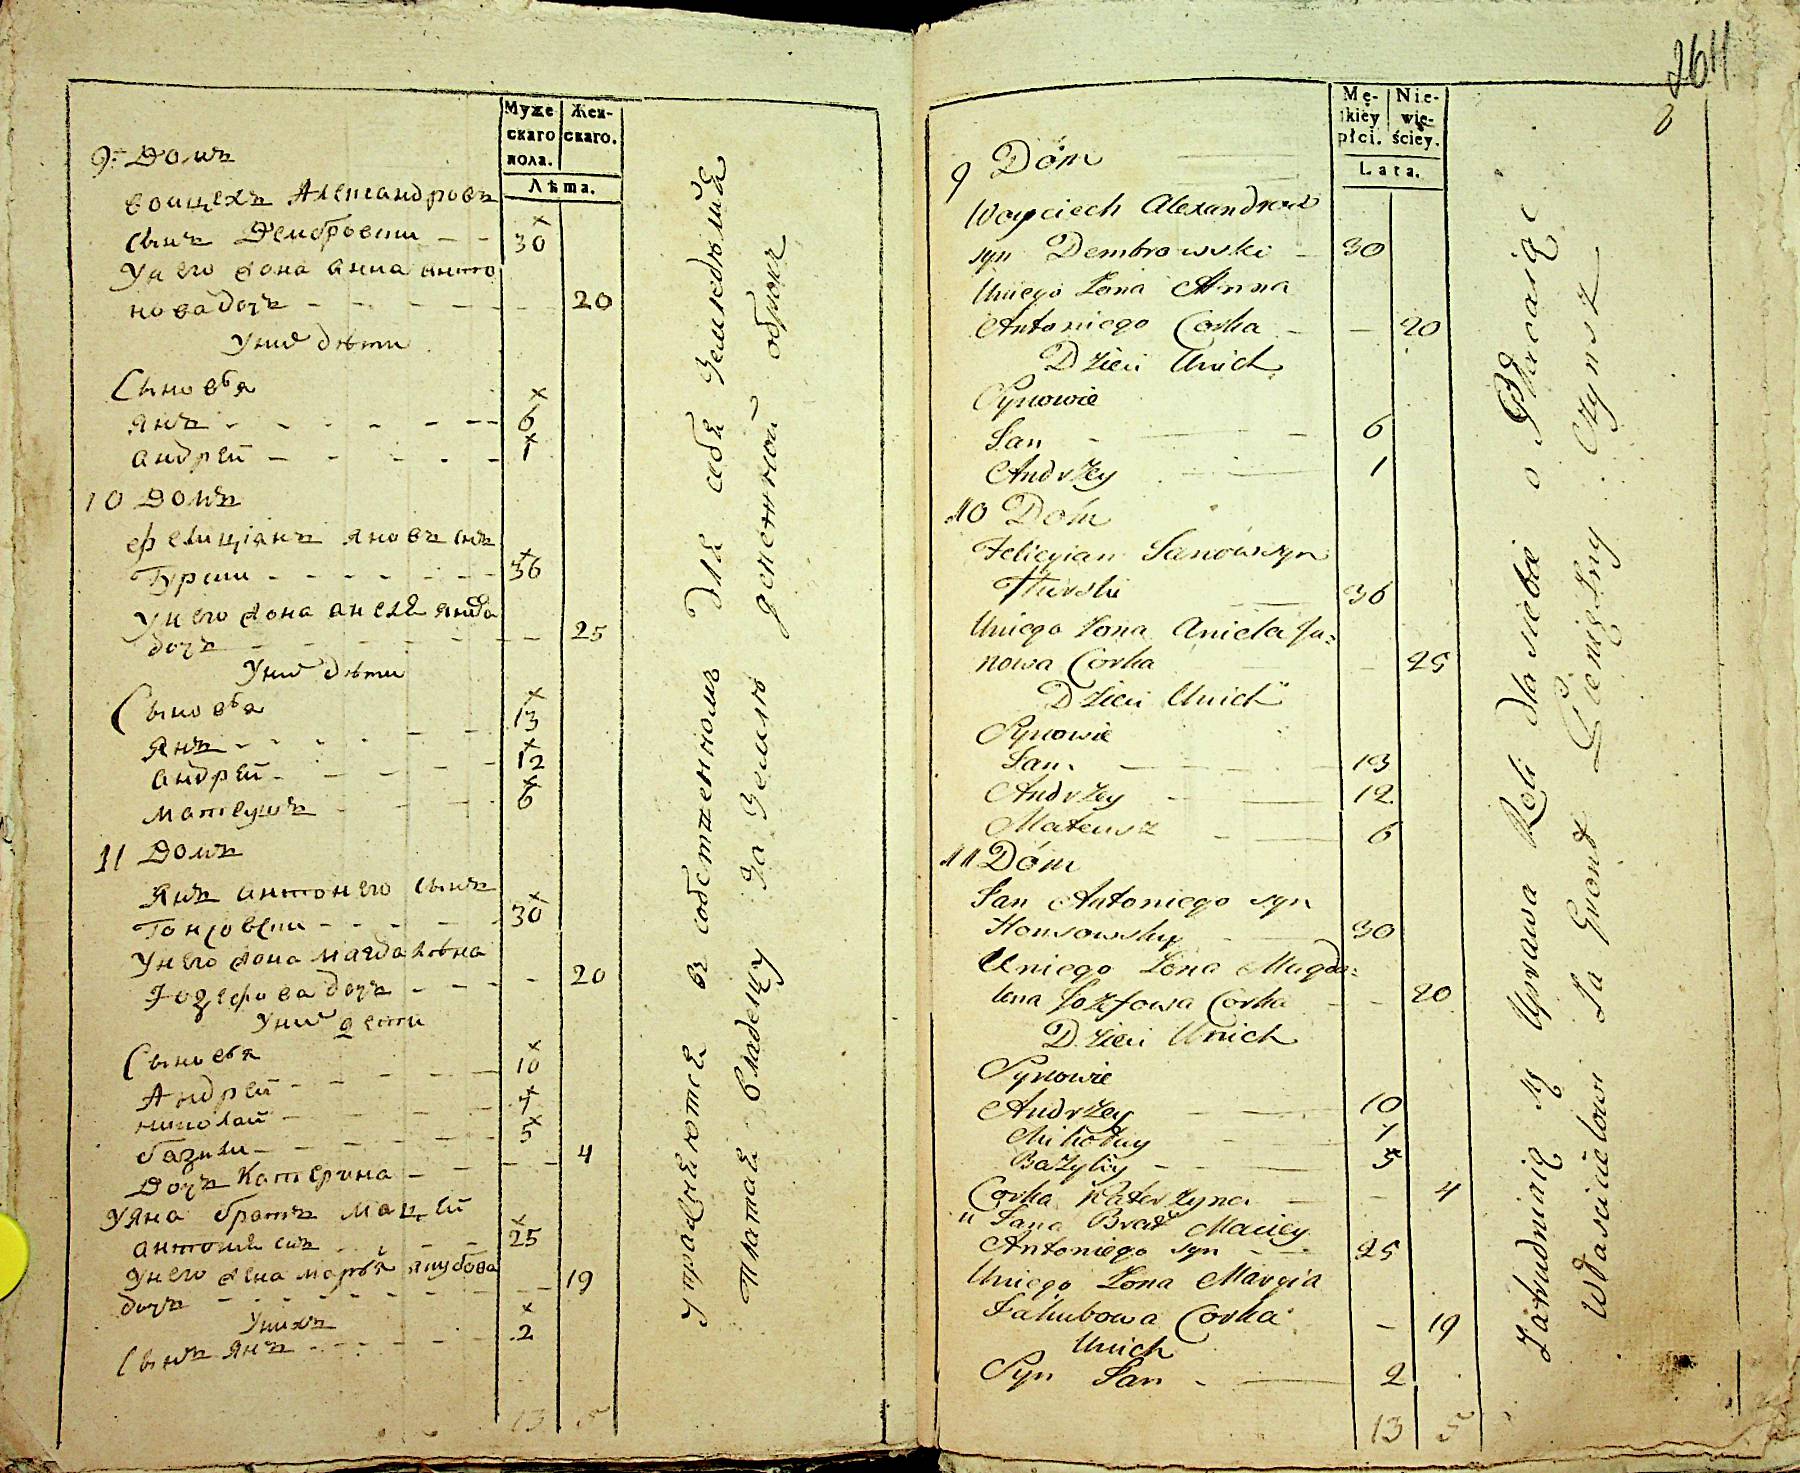 Муже
скаго
пола.
Жен-
скаго.
Лѣта.
9. Домъ
Войцехъ Александровъ
сынъ Дембровски - - 30
У него жона Анна Анто
новадочъ - - - - - - 20
У них дѣти
Сыновья
Янъ - - - - - - 6
Андрей - - - - - 1
10 Домъ
Фелиціянъ Яновъ снъ
Турски - - - - - - 36
У него жона Анеля Янова
дочъ - - - - - - 25
У них дѣти
Сыновья
Янъ - - - - - - 13
Андрей - - - - - 12
Матеушъ - - - - 6
11 Домъ
Янъ Антонего сынъ
Гонсовски - - - - - 30
У него жона Магдалѣна
Іозефова дочъ - - - - 20
У них дети
Сыновья
Андрей - - - - - 10
Николай - - - - 7
Базыли - - - - - 5
Дочъ Катерина - - - - 4
У Яна братъ Мацей
Антонія снъ - - - - 25
У него жена Марья Якубова
дочъ - - - - - - 19
У нихъ
Сынъ Янъ - - - - - 2
13 5
упражняются в собственном для себя земледѣлия
платая владельцу за землю денежной оброкъ
264
6
Mę-
skiey
płci.
Nie-
wie-
ściey.
Lata.
9 Dóm
Woyciech Alexandrow
syn Dembrowski - 30
Uniego Żona Anna
Antoniego Corka - - 20
Dzieci Unich
Synowie
Jan - - - 6
Andrzey - - 1
10 Dóm
Felicyian Janów syn
Turski - 36
Uniego Żona Aniela Ja=
nowa Corka - 25
Dzieci Unich
Synowie
Jan. - - 13
Andrzey - - 12
Mateusz - - 6
11 Dóm
Jan Antoniego syn
Honsowsky - 30
Uniego Żona Magda=
lena Jozefowa Corka - - 20
Dzieci Unich
Synowie
Andrzey - - 10
Mikołay - - 7
Bazyliy - - - 5
Corka Katarzyna - - 4
u Jana Brat Maciey
Antoniego syn - - 25
Uniego Żona Maryia
Jakubowa Corka - 19
Unich
Syn Jan - - 2
13 5
Zatrudnieni są Uprawa Roli dla siebie o Płacaiąc
Włascicielowi Za Gront Pieniężny Czynsz